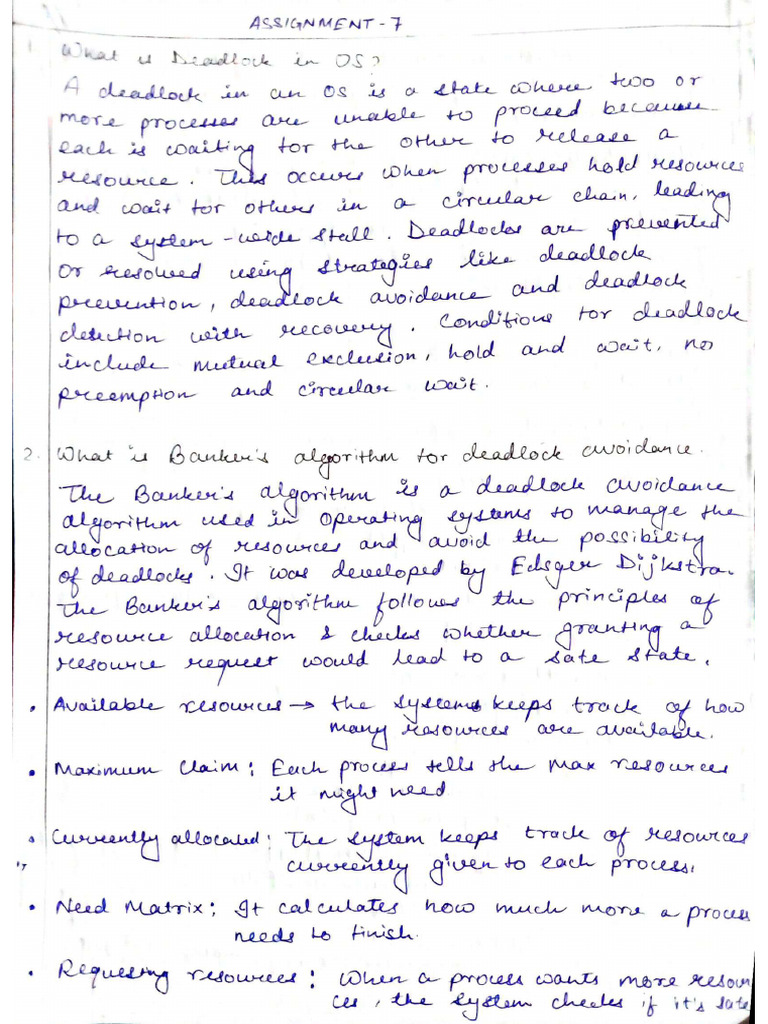 ASSIGNMENT - 7
What is Deadlock in OS?
A deadlock in an OS is a state where two or
more processes are unable to proceed because
each is waiting for the other to release a
resource. This occurs when processes hold resources
and wait for others in a circular chain, leading
to a system-wide stall. Deadlocks are prevented
or resolved using strategies like deadlock
prevention, deadlock avoidance and deadlock
detection with recovery. Conditions for deadlock
include mutual exclusion, hold and wait, no
preemption and circular wait.
2. What is Banker's algorithm for deadlock avoidance.
The Banker's algorithm is a deadlock avoidance
algorithm used in operating systems to manage the
allocation of resources and avoid the possibility
of deadlocks. It was developed by Edsger Dijkstra.
The Banker's algorithm follows the principles of
resource allocation & checks whether granting a
resource request would lead to a safe state.
• Available resources → the systems keeps track of how
many resources are available.
• Maximum Claim: Each process tells the max resources
it might need
• Currently allocated: The system keeps track of resources
currently given to each process.
• Need Matrix: It calculates how much more a process
needs to finish.
• Requesting resources: When a process wants more resour
ces, the system checks if it's safe